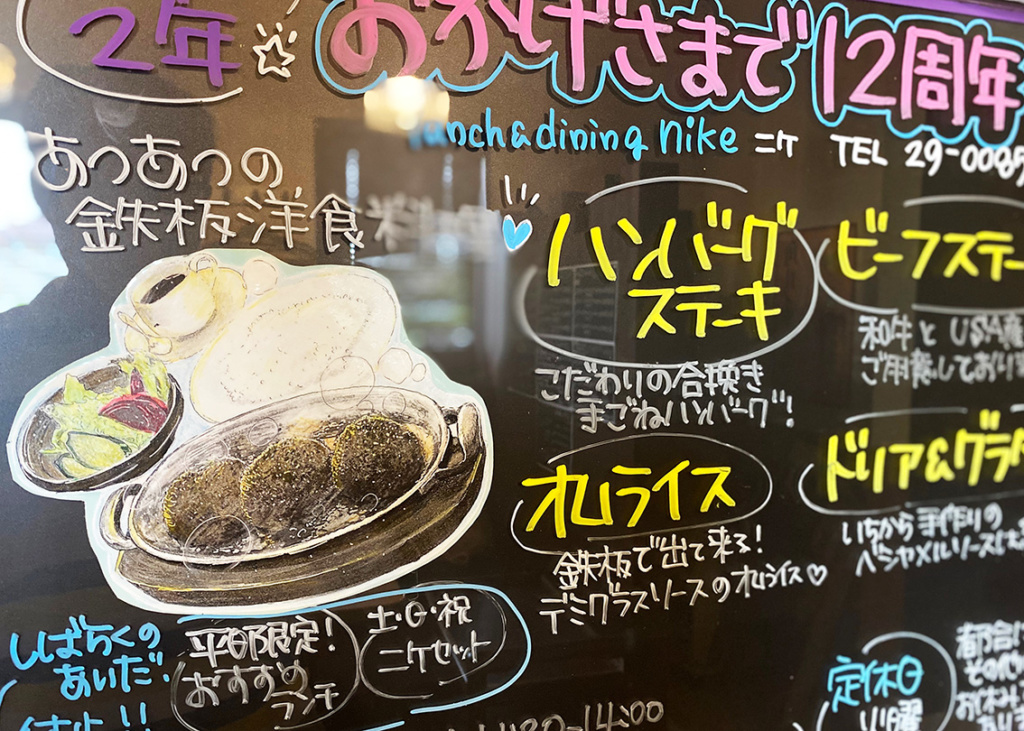 2年☆
おかげさまで 12周年
Lunch&dining Nike ニケ TEL 29-0085
あつあつの
鉄板洋食
ハンバーグ
ステーキ
こだわりの合挽き
まごねハンバーグ!
ビーフステー
和牛と USA産
ご用意しており
オムライス
鉄板で出て来る!
デミグラスソースのオムライス♡
ドリア&グラ
いちから手作りの
ベシャメルソース
しばらくの
あいだ!
平日限定!
おすすめ
ランチ
土・日・祝
ニケセット
-14:00
定休日
火曜
都合
その他
お休み